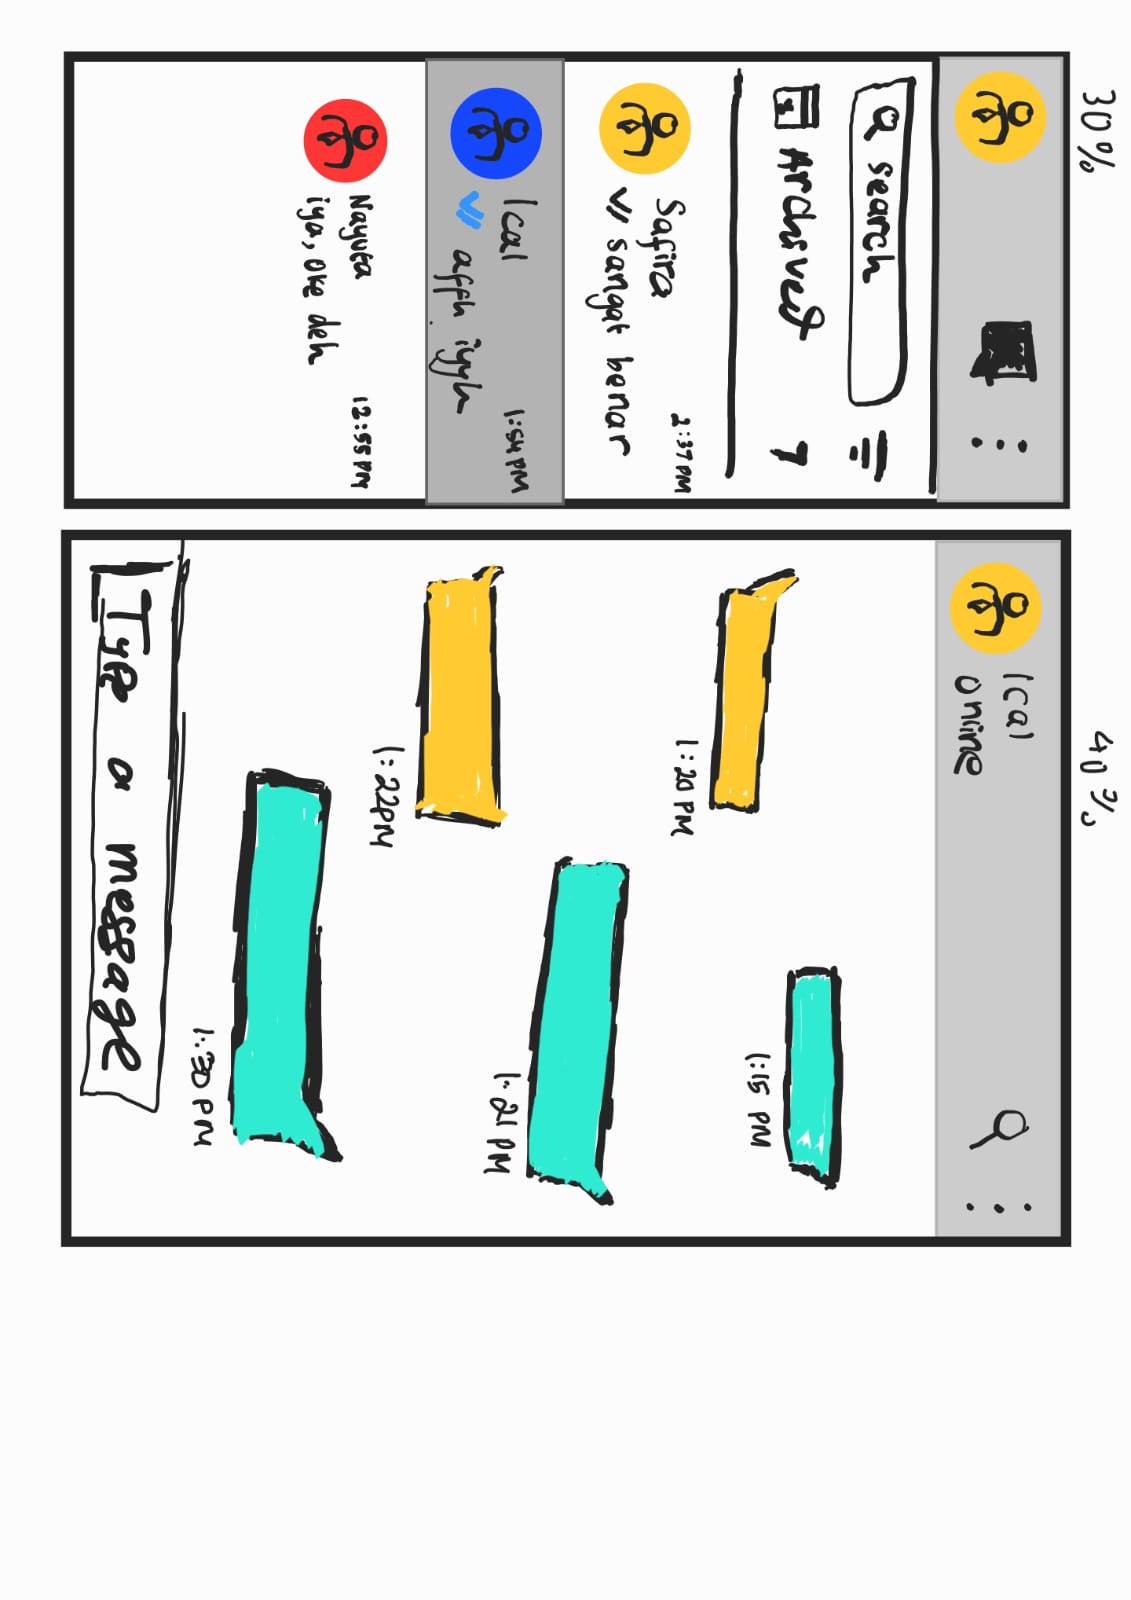 30%
40%
Ical
online
search
Archived 7
Safira 2:37 PM
sangat benar
Ical 1:54 PM
affh iyyh
Nayuta 12:55 PM
iya, oke deh
1:15 PM
1:20 PM
1:21 PM
1:22 PM
1:30 PM
Type a message